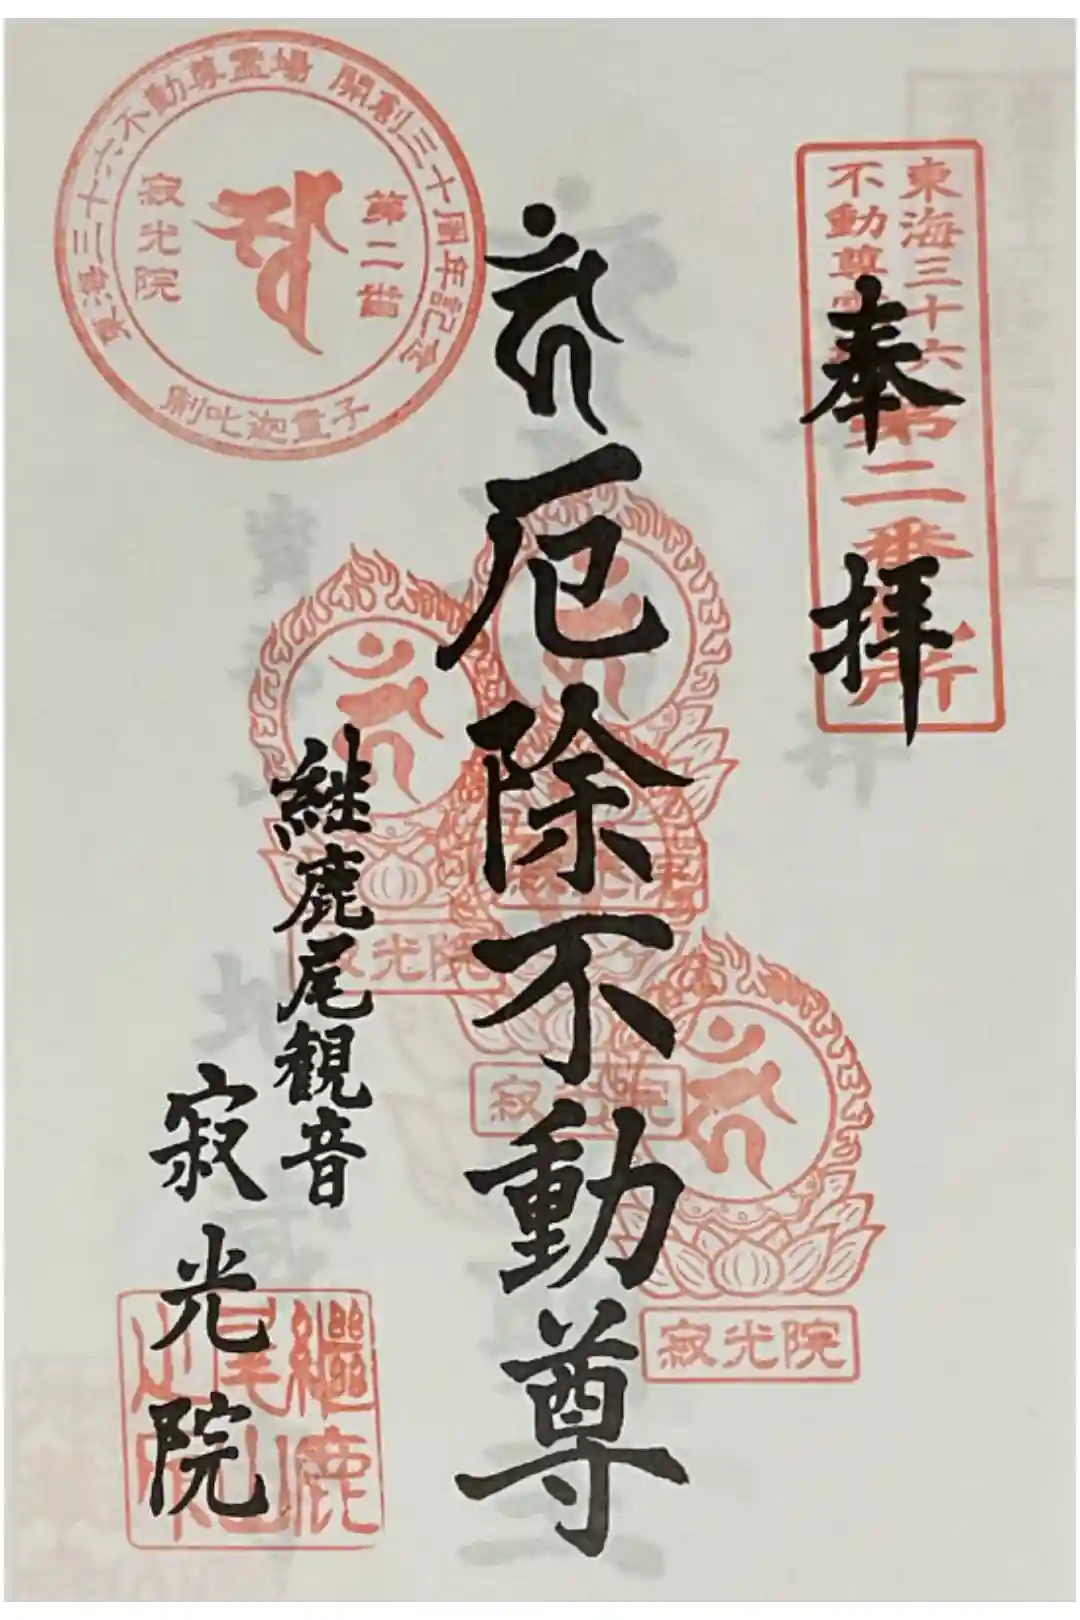 奉拝
東海三十六
不動尊霊場
第二番
所
厄除不動尊
継鹿尾観音
寂光院
東海三十六不動尊霊場 開創三十周年記念
第二番
寂光院
制吒迦童子
寂光院
寂光院
寂光院
継鹿
尾山